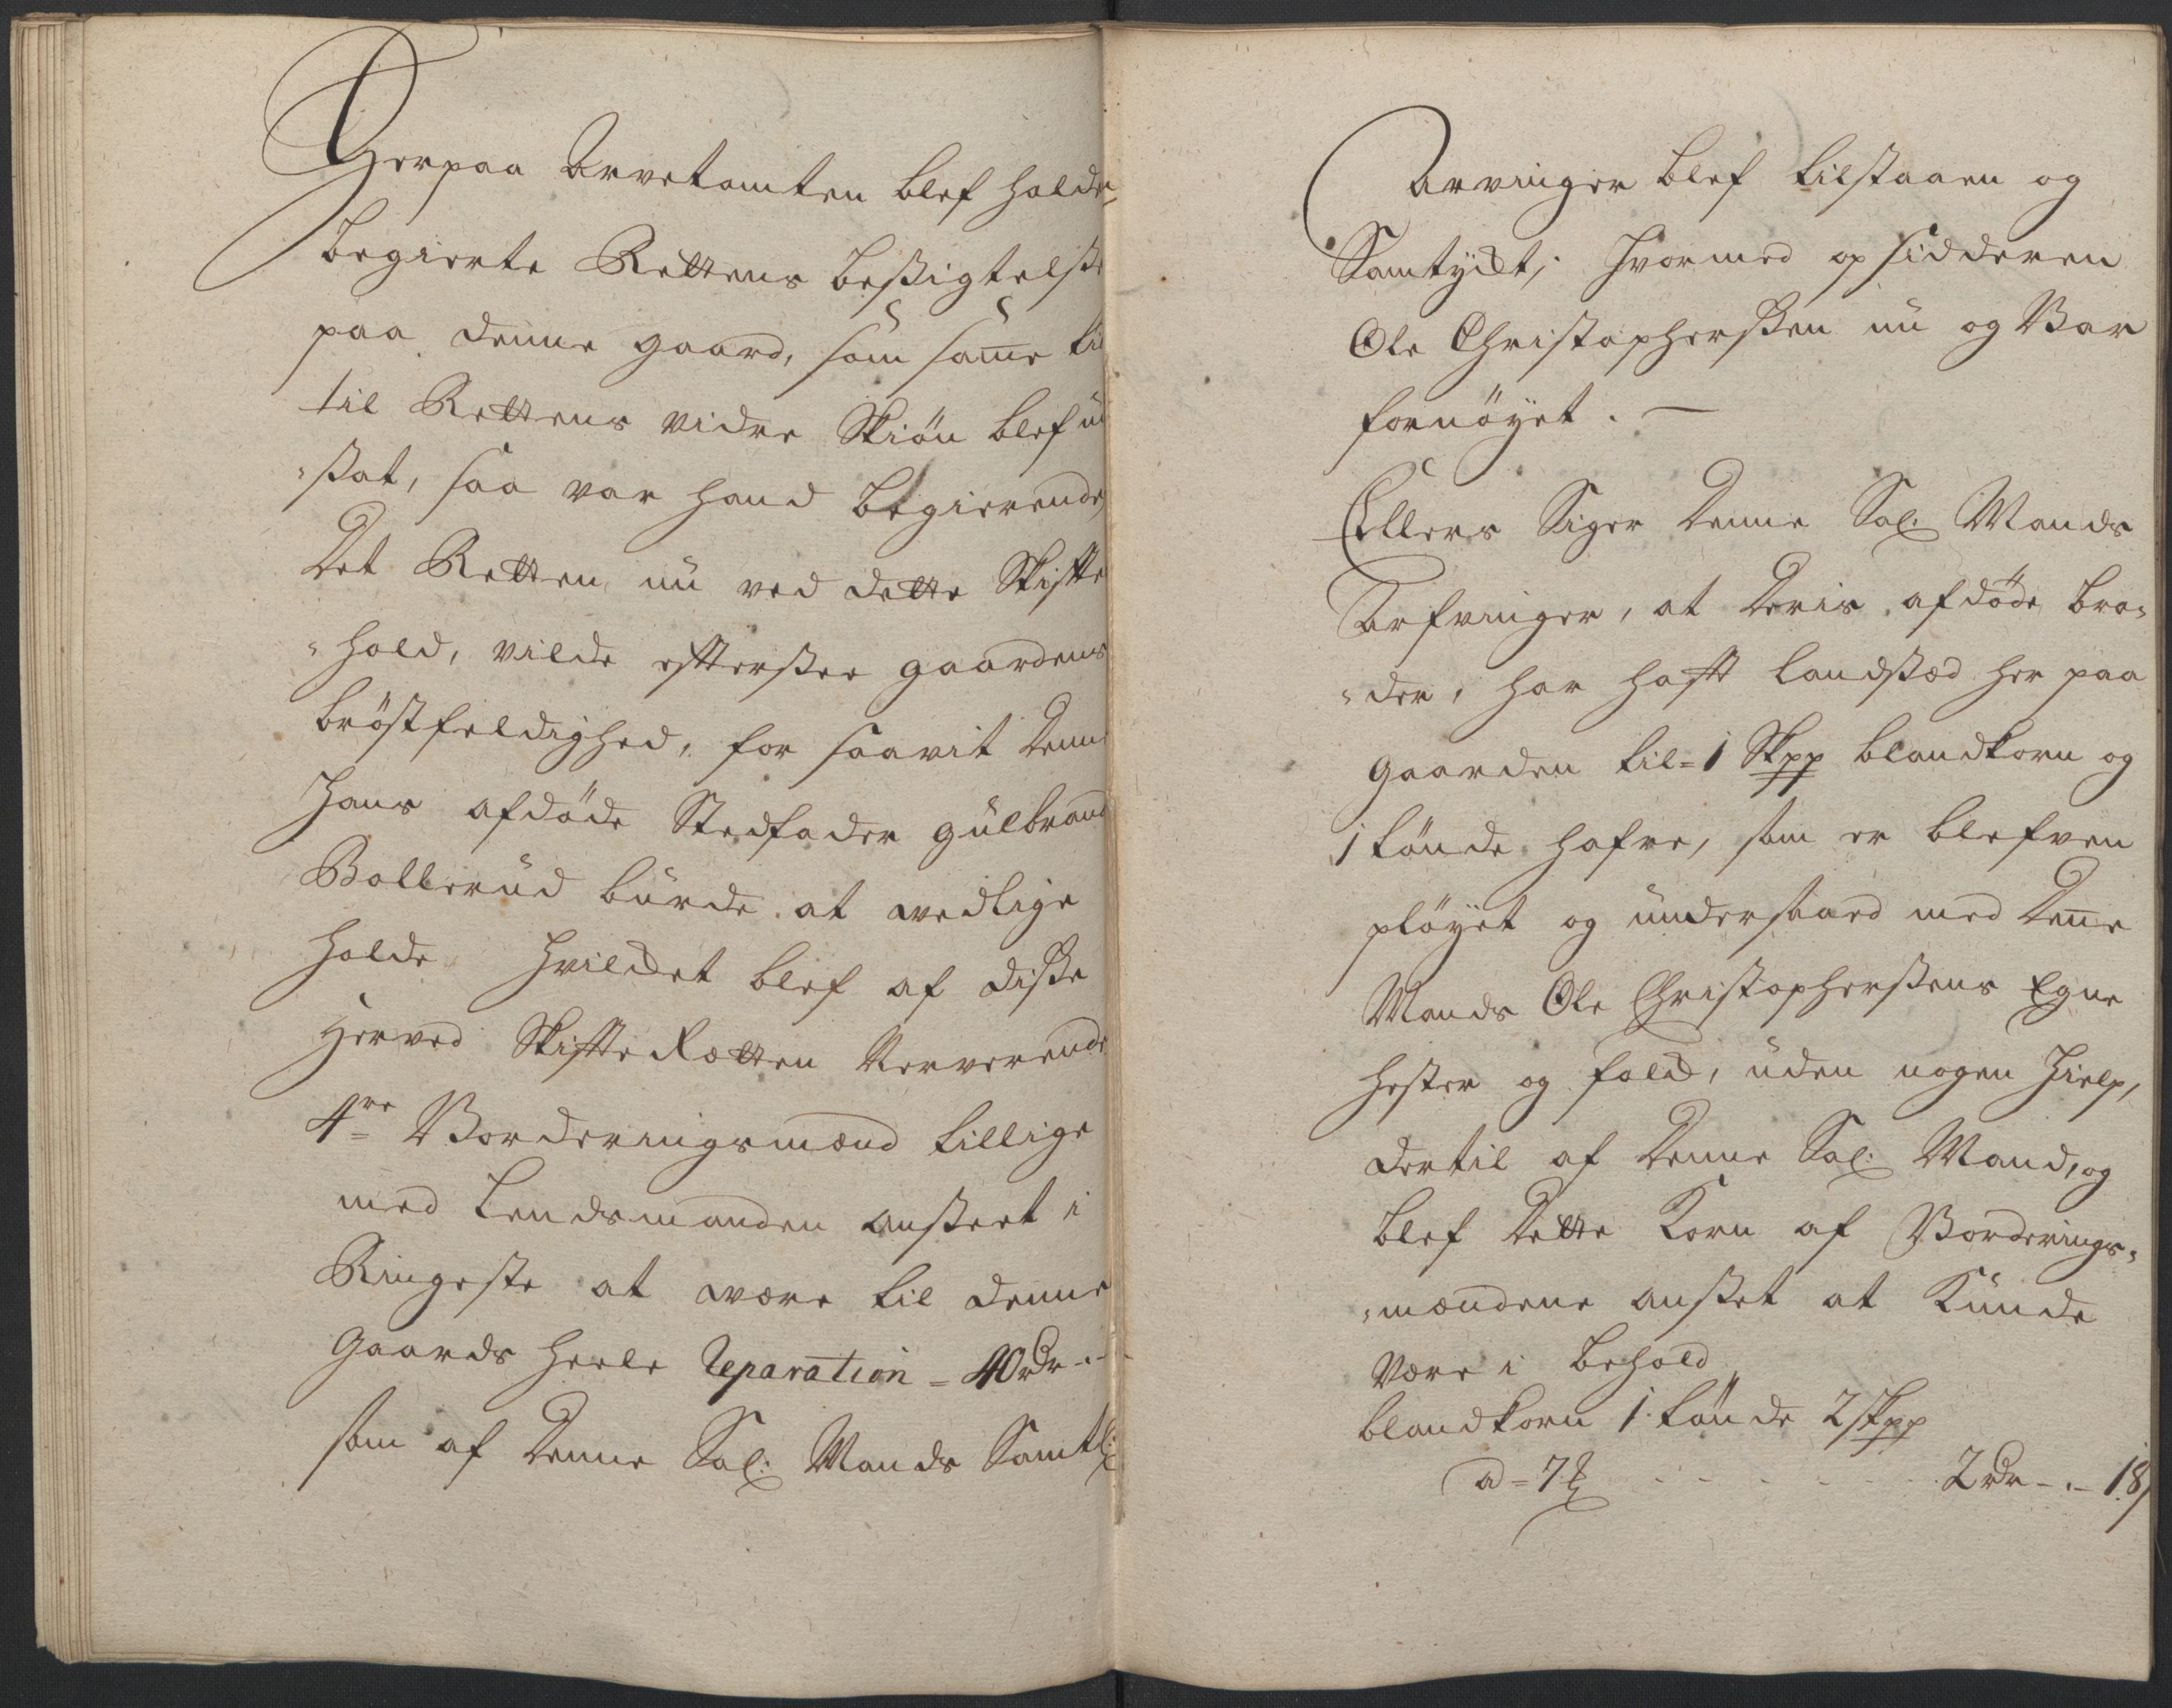 Herpaa Arvetomten blef holde
begierte Rettens beßigtelße
paa denne gaard, som same til
til Rettens vidre Skiön blef ud
"ßat, saa var hand begierende,
Det Retten nu ved dette Skifte
"hold, vilde efterßee gaardens
bröstfeldighed, for saavit denne
Hans afdöde Stedfader gulbrand
Bollerud burde at vedlige
holde Hvilcket blef af diße
Herved Skifte Rætten nerverende
4re Vorderingsmænd tillige
med Lendsmanden anßeet i
Ringeste at være til denne
Gaards heele Reparation = 40 rdr -
som af denne Sal: Mands Samtl:
Arvinger blef tilstaaen og
Samtyckt, hvormed opsidderen
Ole Christopherßen nu og Var
fornöyet. —
Ellers Siger denne Sal: Mands
Arfvinger, at deris afdöde bro"
"der, har haft landßæd her paa
gaarden til = 1 Skpp blandkorn og
1 tönde hafre, som er blefven
plöyet og understaaed med denne
Mands Ole Christopherßens Egne
hester og folck, uden nogen Hielp,
dertil af denne Sal: Mand, og
blef dette Korn af Vorderings"
"mændene anßet at Kunde
Være i behold
blandkorn 1 tönde 2 skpp
ad = 7 - - - - - - 2 rdr - . - 18